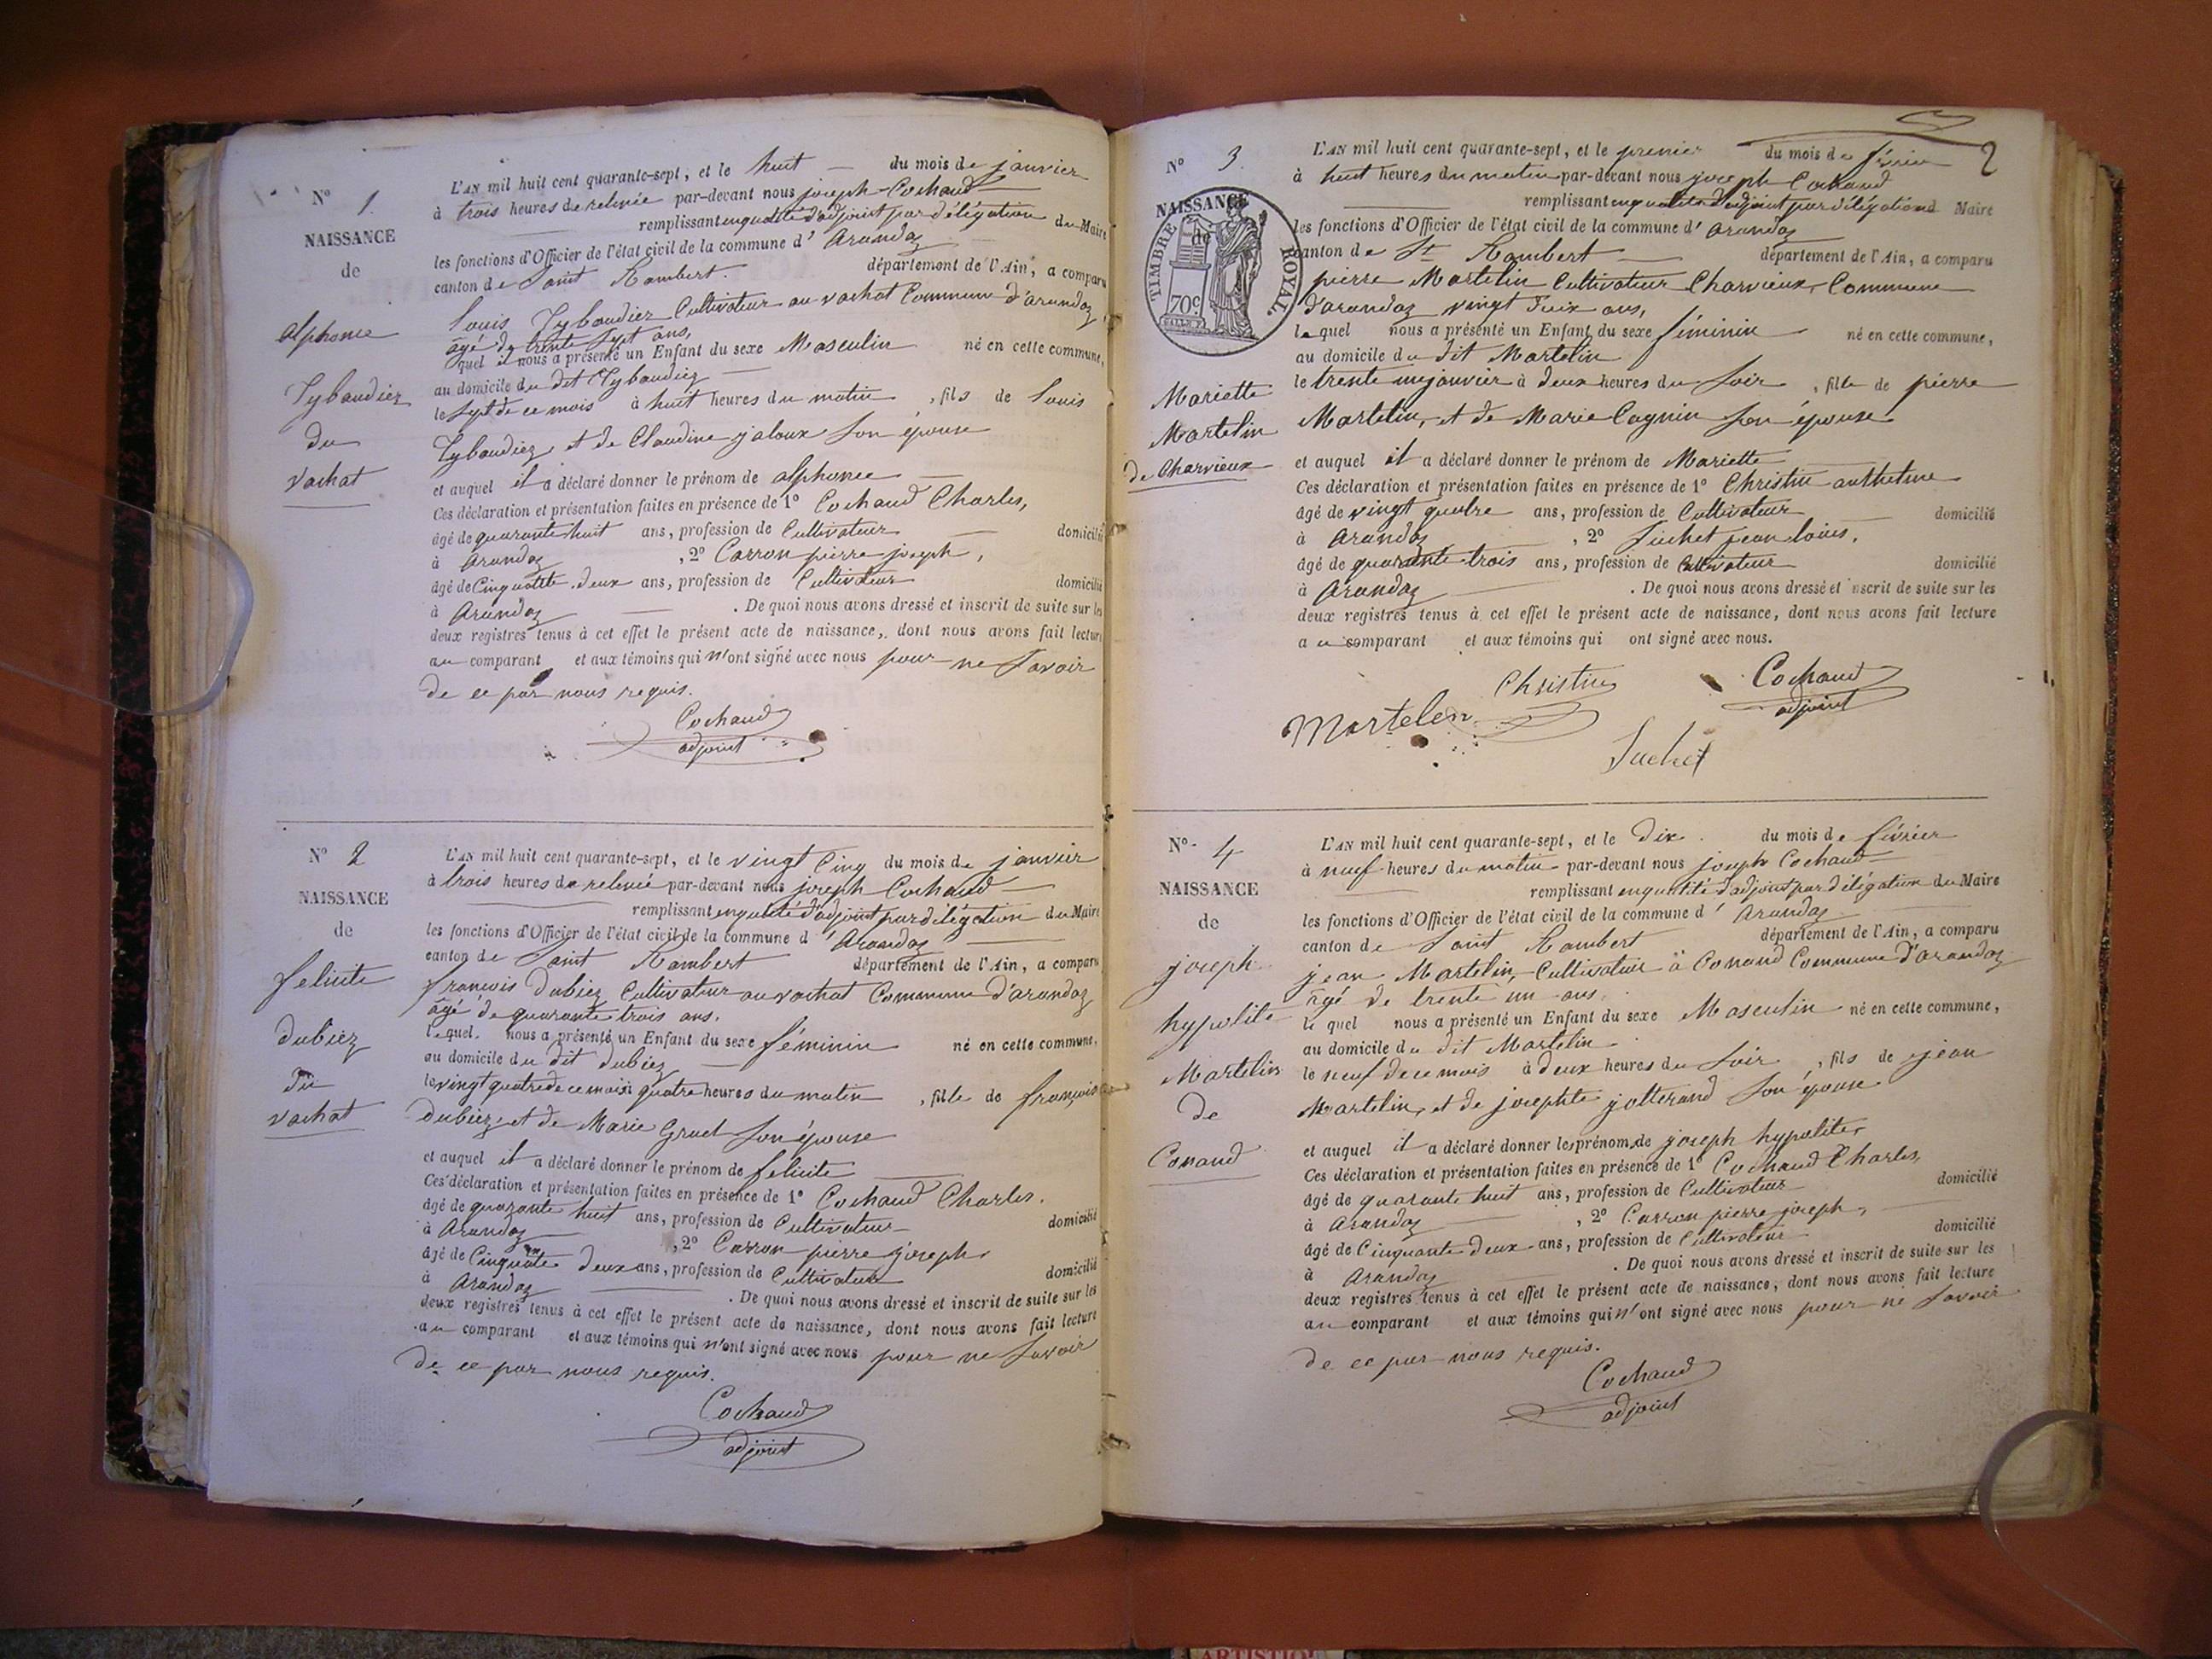 N° 1.
NAISSANCE
de
alphonce
Tybaudier
du
vachat
L'AN mil huit cent quarante-sept, et le huit du mois de janvier
à trois heures de relevée par-devant nous joseph Cochaud
remplissant en qualité d'adjoint par délégation du Maire
les fonctions d'Officier de l'état civil de la commune d'Arandaz
canton de Saint Rambert. département de l'Ain, a comparu
Louis Tybaudier Cultivateur au vachat Commune d'arandaz,
âgé de trente sept ans,
quel il nous a présenté un Enfant du sexe Masculin né en cette commune,
au domicile du dit Tybaudiez
le sept de ce mois à huit heures du matin, fils de Louis
Tybaudiez et de Claudine jaloux son épouse
et auquel il a déclaré donner le prénom de alphonce
Ces déclaration et présentation faites en présence de 1° Cochaud Charles,
âgé de quarante huit ans, profession de Cultivateur domicilié
à Arandaz, 2° Carron pierre joseph,
âgé de Cinquante deux ans, profession de Cultivateur domicilié
à Arandaz. De quoi nous avons dressé et inscrit de suite sur les
deux registres tenus à cet effet le présent acte de naissance, dont nous avons fait lecture
au comparant et aux témoins qui n'ont signé avec nous pour ne savoir
de ce par nous requis.
Cochaud
adjoint
N° 2
NAISSANCE
de
felicite
dubiez
du
vachat
L'AN mil huit cent quarante-sept, et le vingt Cinq du mois de janvier
à trois heures de relevée par-devant nous joseph Cochaud
remplissant en qualité d'adjoint par délégation du Maire
les fonctions d'Officier de l'état civil de la commune d'Arandaz
canton de Saint Rambert département de l'Ain, a comparu
françois dubiez Cultivateur au vachat Commune d'arandaz
âgé de quarante trois ans.
lequel nous a présenté un Enfant du sexe féminin né en cette commune,
au domicile du dit dubiez
le vingt quatre de ce mois à quatre heures du matin, fille de françois
dubiez, et de Marie Gruel son épouse
et auquel il a déclaré donner le prénom de felicite
Ces déclaration et présentation faites en présence de 1° Cochaud Charles.
âgé de quarante huit ans, profession de Cultivateur domicilié
à Arandaz, 2° Carron pierre joseph,
âgé de Cinquante deux ans, profession de Cultivateur domicilié
à Arandaz. De quoi nous avons dressé et inscrit de suite sur les
deux registres tenus à cet effet le présent acte de naissance, dont nous avons fait lecture
au comparant et aux témoins qui n'ont signé avec nous pour ne savoir
de ce par nous requis.
Cochaud
adjoint
2
N° 3.
NAISSANCE
de
TIMBRE ROYAL
70c
Mariette
Martelin
de Charvieux
L'AN mil huit cent quarante-sept, et le premier du mois de février
à huit heures du matin par-devant nous joseph Cochaud
remplissant en qualité d'adjoint par délégation d Maire
les fonctions d'Officier de l'état civil de la commune d'Arandaz
canton de St Rambert département de l'Ain, a comparu
pierre Martelin Cultivateur Charvieux, Commune
d'arandaz vingt deux ans,
lequel nous a présenté un Enfant du sexe féminin né en cette commune,
au domicile du dit Martelin
le trente un janvier à deux heures du soir, fille de pierre
Martelin, et de Marie Cagnin son épouse
et auquel il a déclaré donner le prénom de Mariette
Ces déclaration et présentation faites en présence de 1° Christin anthelme
âgé de vingt quatre ans, profession de Cultivateur domicilié
à Arandaz, 2° Suchet jean louis,
âgé de quarante trois ans, profession de Cultivateur domicilié
à Arandaz. De quoi nous avons dressé et inscrit de suite sur les
deux registres tenus à cet effet le présent acte de naissance, dont nous avons fait lecture
au comparant et aux témoins qui ont signé avec nous.
Christin Cochaud
Martelen adjoint
Suchet
N° 4
NAISSANCE
de
joseph
hypolite
Martelin
de
Conand
L'AN mil huit cent quarante-sept, et le dix du mois de février
à neuf heures du matin par-devant nous joseph Cochaud
remplissant en qualité d'adjoint par délégation du Maire
les fonctions d'Officier de l'état civil de la commune d'Arandaz
canton de Saint Rambert département de l'Ain, a comparu
jean Martelin, Cultivateur à Conand Commune d'arandaz
âgé de trente un ans,
le quel nous a présenté un Enfant du sexe Masculin né en cette commune,
au domicile du dit Martelin
le neuf de ce mois à deux heures du soir, fils de jean
Martelin, et de josephte jotterand son épouse
et auquel il a déclaré donner les prénom de joseph hypolite,
Ces déclaration et présentation faites en présence de 1° Cochaud Charles,
âgé de quarante huit ans, profession de Cultivateur domicilié
à Arandaz, 2° Carron pierre joseph,
âgé de Cinquante deux ans, profession de Cultivateur domicilié
à Arandaz. De quoi nous avons dressé et inscrit de suite sur les
deux registres tenus à cet effet le présent acte de naissance, dont nous avons fait lecture
au comparant et aux témoins qui n'ont signé avec nous pour ne savoir
de ce par nous requis.
Cochaud
adjoint